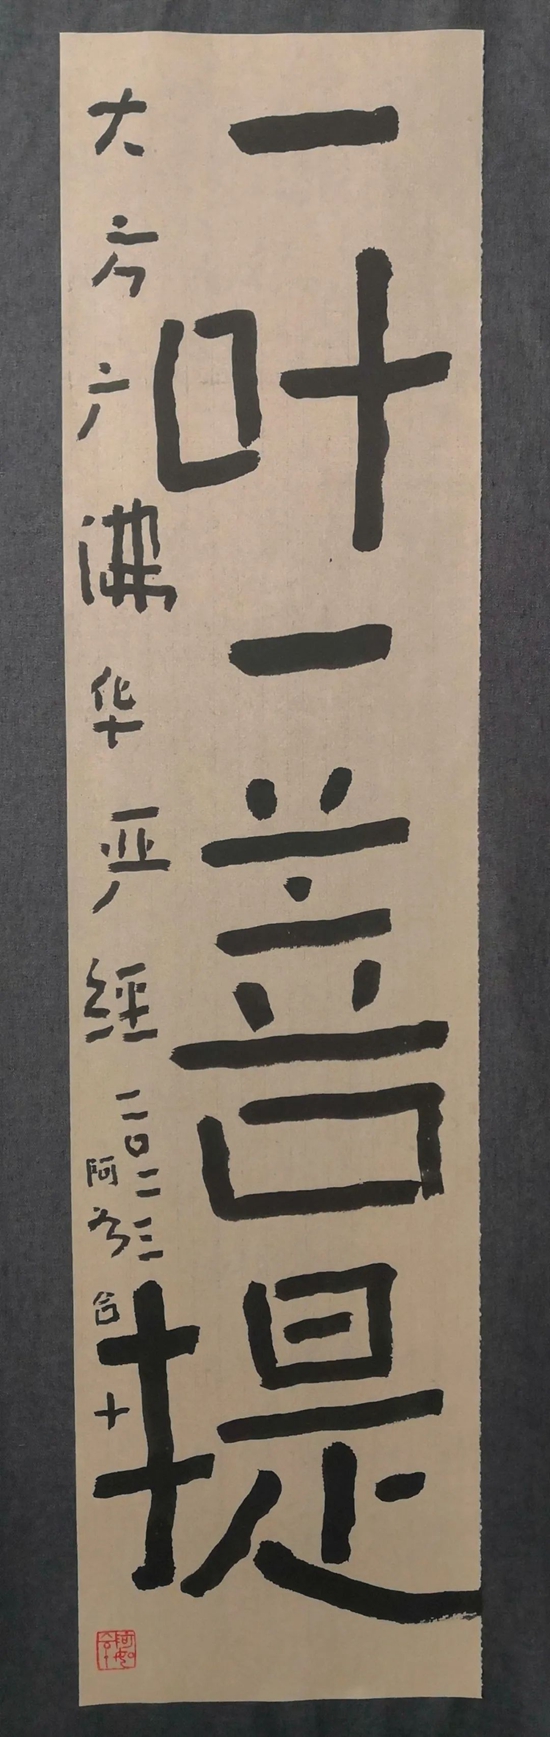 一叶一菩提
大方广佛华严经
二〇二三
阿
合十